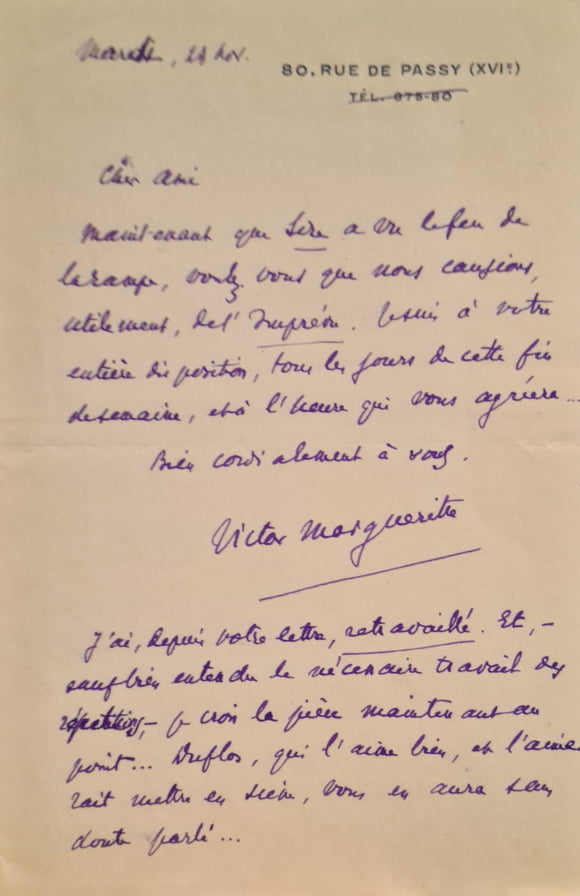 Mardi, 24 Nov.
80, RUE DE PASSY (XVIe)
TÉL. 675-80
Cher Ami
Maintenant que Sire a vu le feu de
la rampe, voulez vous que nous causions,
utilement, de l'Imprévu. Je suis à votre
entière disposition, tous les jours de cette fin
de semaine, et à l'heure qui vous agréera...
Bien cordialement à vous.
Victor Margueritte
J'ai, depuis votre lettre, retravaillé. Et, –
sauf bien entendu le nécessaire travail des
répétitions, – je crois la pièce maintenant au
point... Duflos, qui l'aime bien, et l'aime
rait mettre en scène, vous en aura sans
doute parlé...